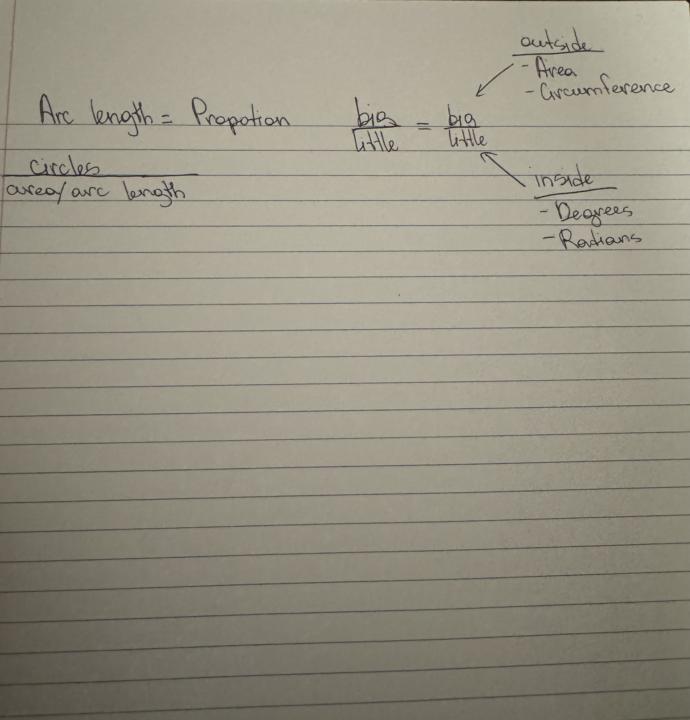 outside
- Area
- Circumference
Arc length = Propotion big/little = big/little
circles
area/arc length
inside
- Degrees
- Radians